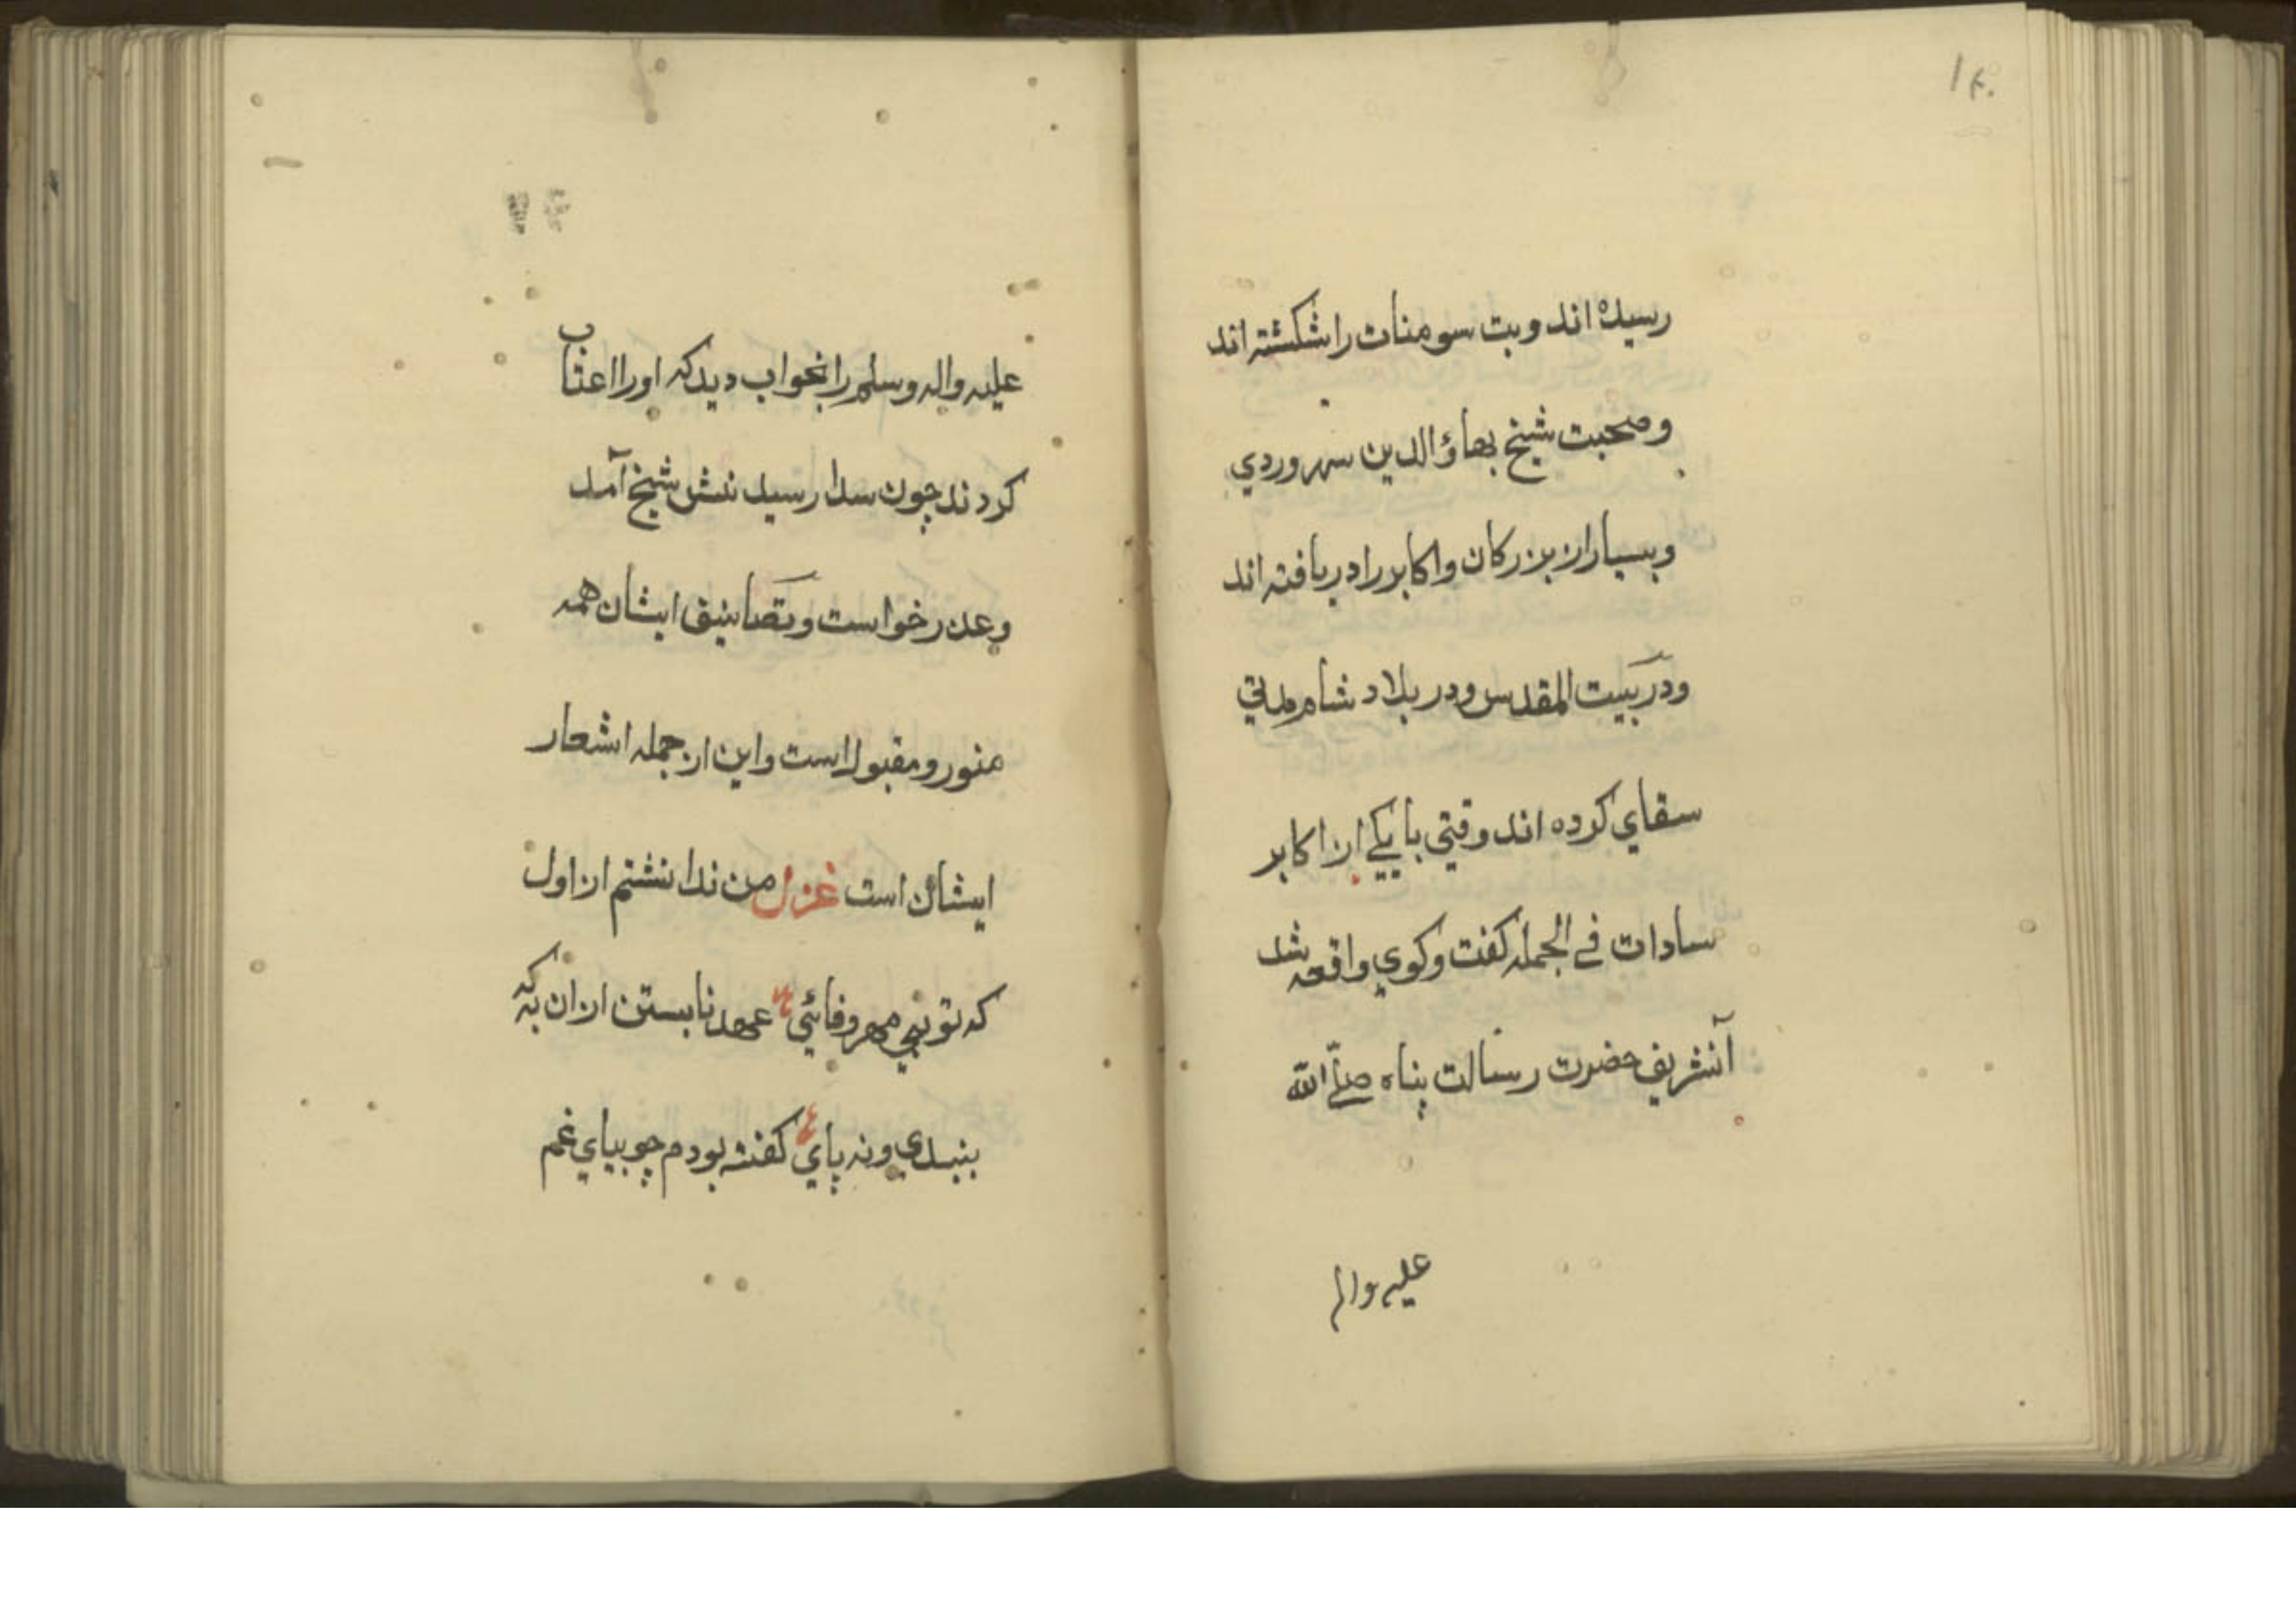 ۱۴۰
رسیده اند و بت سومنات را شکشته اند
و صحبت شیخ بهاؤ الدین سهروردي
و بسیار از بزرکان و اکابر را دریافته اند
و در بیت المقدس و در بلاد شام مدتي
سقاي کرده اند وقتي با یکے از اکابر
سادات فے الجمله کفت وکوي واقعه شد
آنشریف حضرت رسالت پناه صلے الله
علیه واله
علیه واله وسلم را بخواب دید که اورا اعتاب
کردند چون سدار رسید نبش شیخ آمد
وعدر خواست و تصانیف ایشان همه
منور و مقبول است و این از جمله اشعار
ایشان است غزل من ندانشتم از اول
که تو بي مهر وفائي عهد نابستن از ان به که
ببندي و نه پاي کفته بودم چو بیاي غم